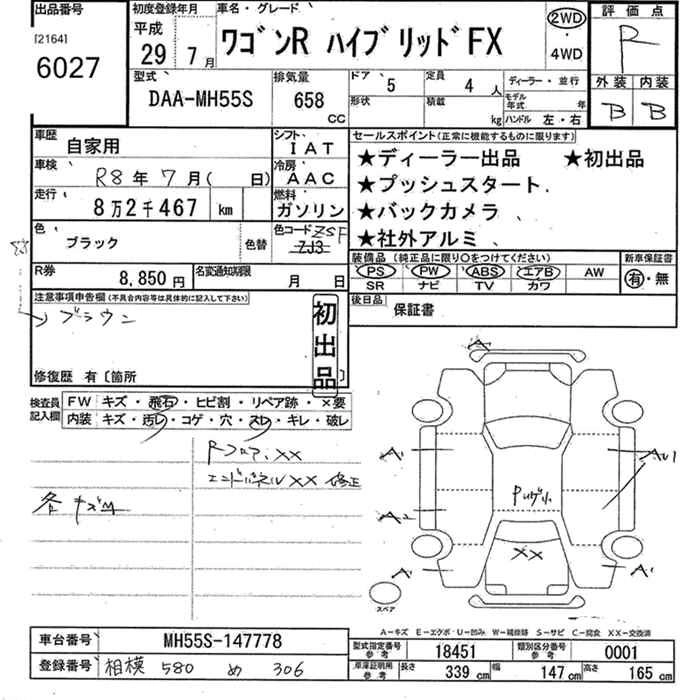 出品番号
[2164]
6027
初度登録年月
平成
29年 7月
車名・グレード
ワゴンR ハイブリッドFX
2WD
・
4WD
評価点
R
外装 内装
B B
型式
DAA-MH55S
排気量
658
CC
ドア
5
定員
4人
形状
積載
kg
ディーラー・並行
モデル年式 年
ハンドル 左・右
車歴
自家用
シフト
IAT
車検
R8年 7月( 日)
冷房
AAC
走行
8万2千467 km
燃料
ガソリン
色
ブラック
色替
色コード ZSF
ZJ3
R券
8,850円
名変通知期限
月 日
セールスポイント(正常に機能するものに限ります)
★ディーラー出品 ★初出品
★プッシュスタート
★バックカメラ
★社外アルミ
装備品(純正品に限り○をつけてください)
PS PW ABS エアB AW
SR ナビ TV カワ
新車保証書
有・無
後日品
保証書
注意事項申告欄(不具合内容等は具体的に記入して下さい)
☆→ブラウン
初出品
修復歴 有〔箇所
検査員記入欄
FW キズ・飛石・ヒビ割・リペア跡・×要
内装 キズ・汚レ・コゲ・穴・スレ・キレ・破レ
Rフロア、XX
エンドパネルXX 修正
各キズ
A
A1
AU1
A2
XX
A1
A1
スペア
A-キズ E-エクボ・U-凹み W-補修跡 S-サビ C-腐食 XX-交換済
車台番号
MH55S-147778
登録番号
相模 580 め 306
型式指定番号参考
18451
類別区分番号参考
0001
車庫証明用参考
長さ 339cm 幅 147cm 高さ 165cm